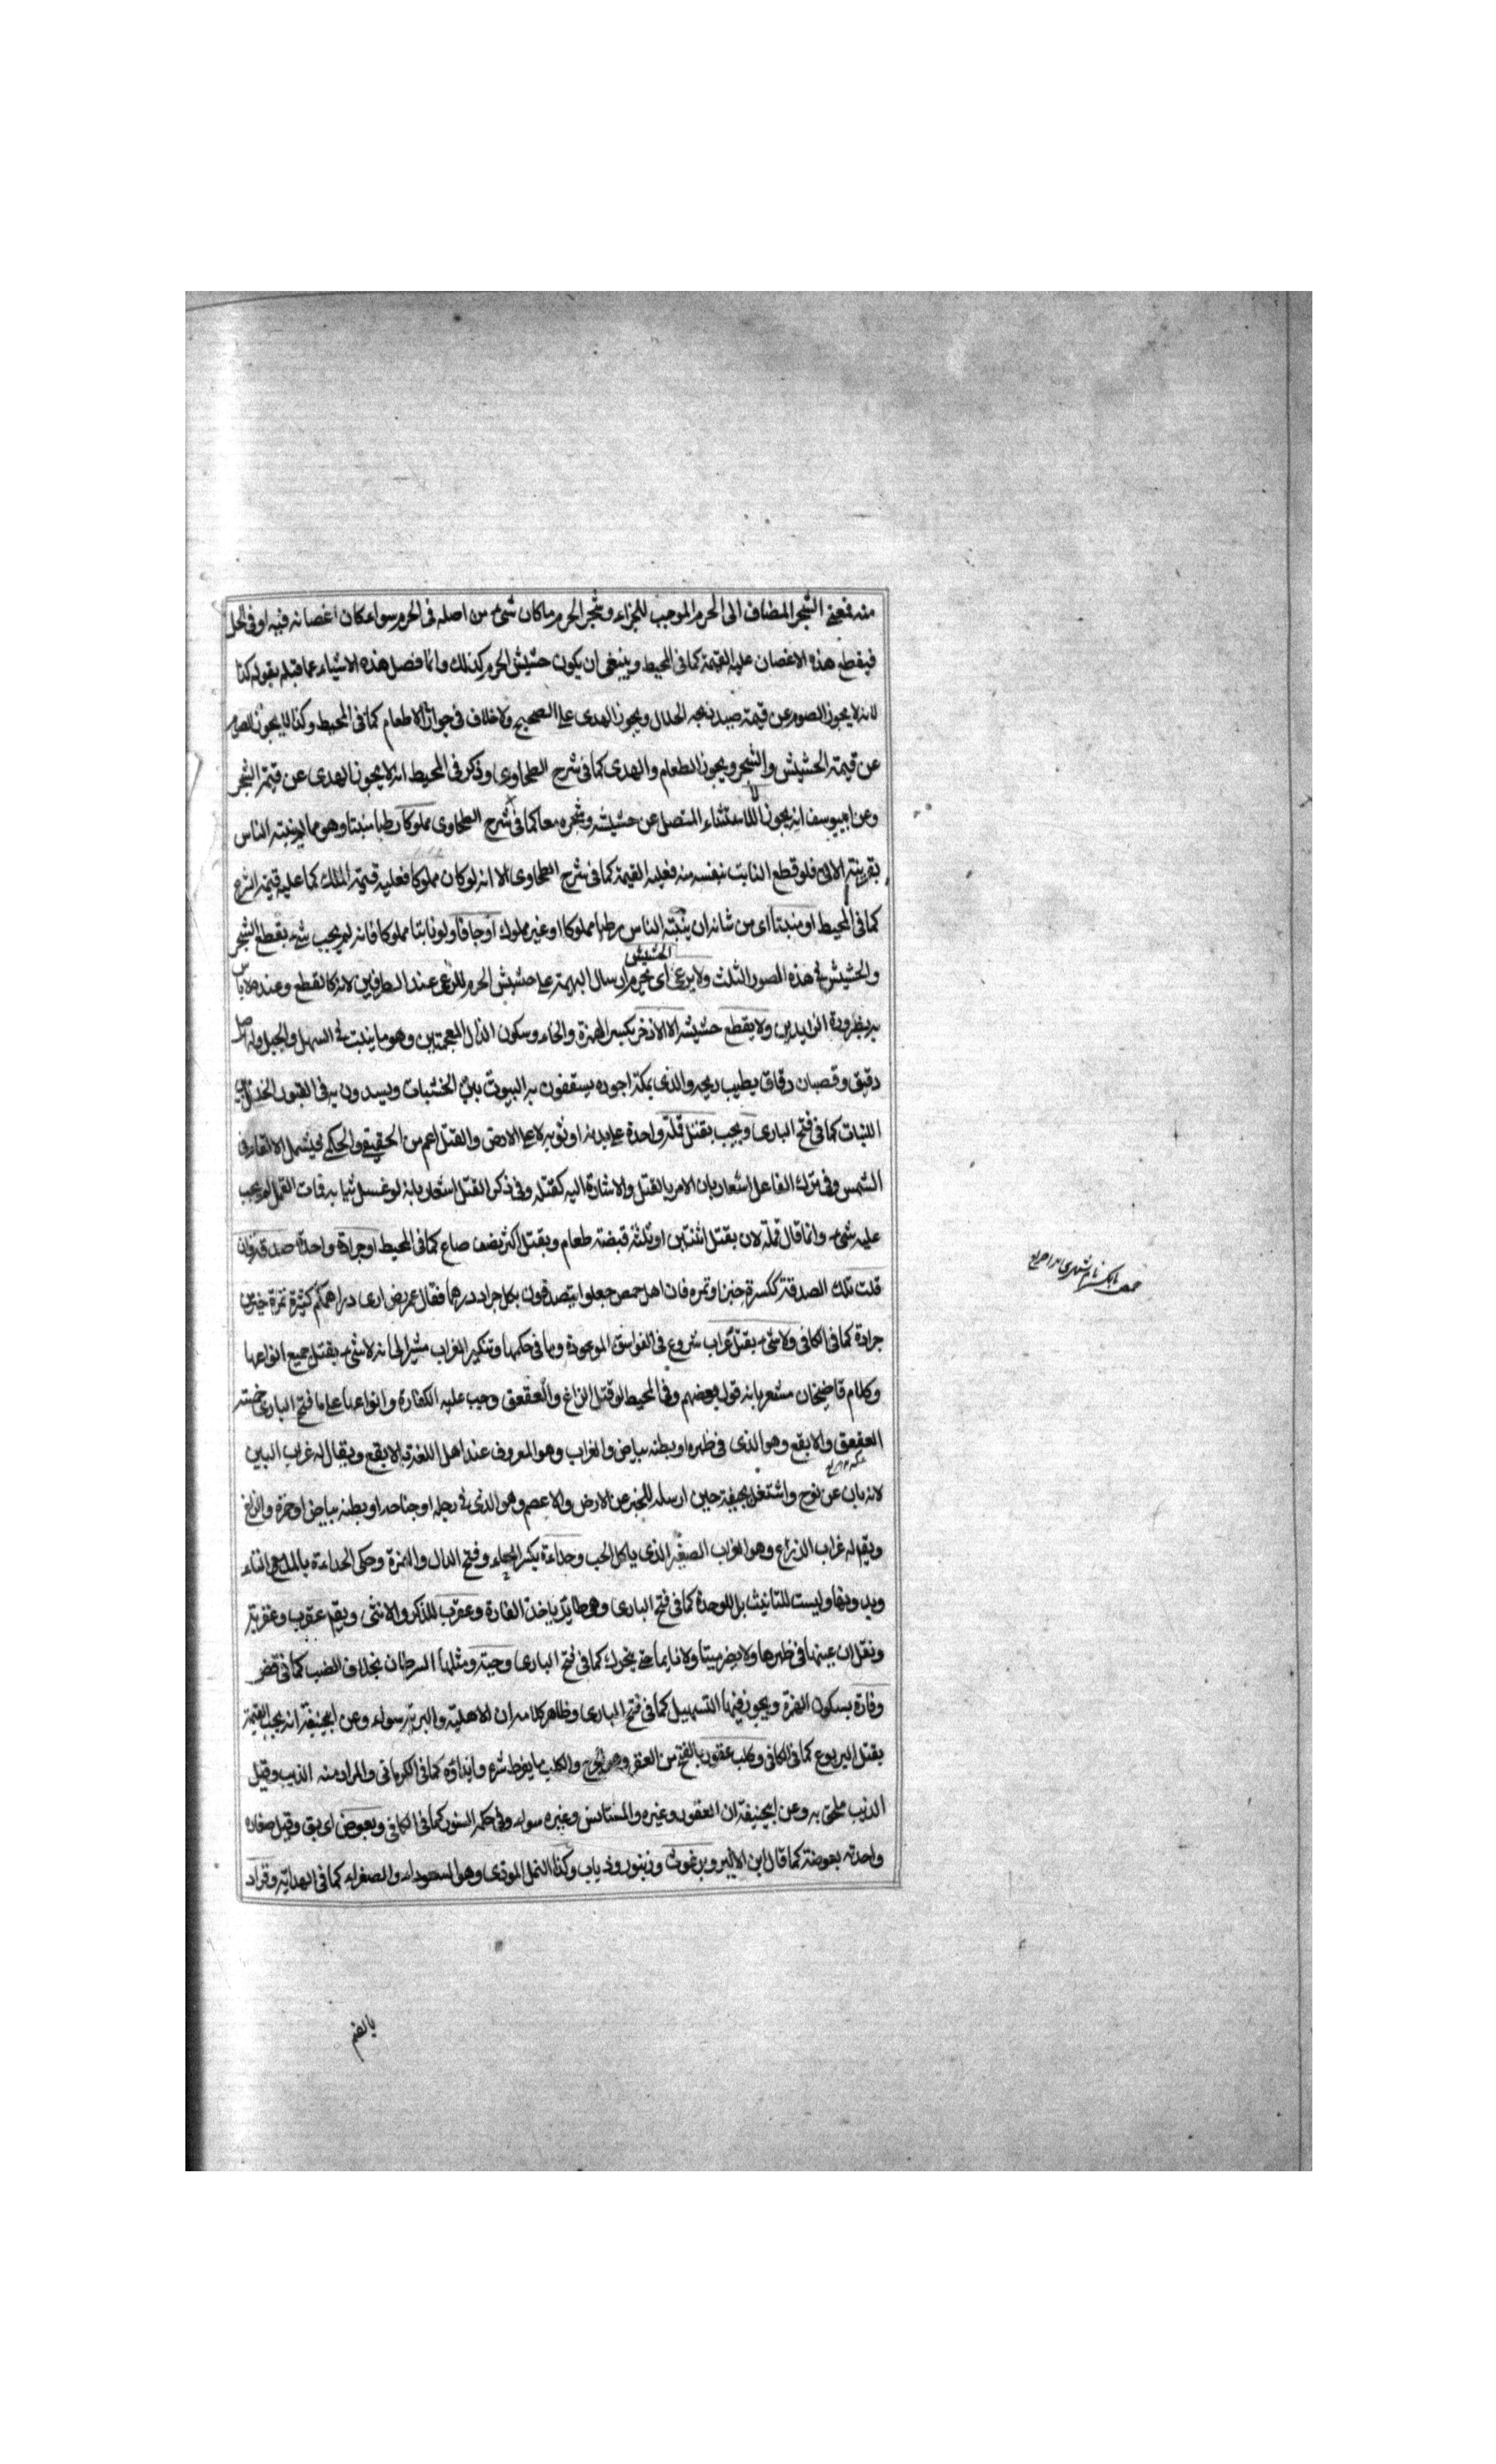 منه فمعنى الشجر المضاف الى الحرم الموجب للجزاء وشجر الحرم ما كان شىء من اصله فى الحرم سواء كان اغصانه فيه او فى الحل
فبقطع هذه الاغصان عليه القيمة كما فى المحيط وينبغى ان يكون حشيش الحرم كذلك وانما فصل هذه الاشياء عما قبله بقوله كذا
لانه لا يجوز الصوم عن قيمة صيد ذبحه الحلال ويجوز الهدى على الصحيح ولا خلاف فى جواز الاطعام كما فى المحيط وكذا لا يجوز الصوم
عن قيمة الحشيش والشجر ويجوز الطعام والهدى كما فى شرح الطحاوى وذكر فى المحيط انه لا يجوز الهدى عن قيمة الشجر
وعن ابيوسف انه يجوز الا استثناء المتصل عن حشيشه وشجره معا كما فى شرح الطحاوى مملوكا رطبا منبتا وهو مما لا ينبته الناس
بقرينة الاتى فلو قطع النابت بنفسه منه فعليه القيمة كما فى شرح الطحاوى الا انه لو كان مملوكا فعليه قيمة الملك كما عليه قيمة الشرع
كما فى المحيط او منبتا اى من شانه ان ينبته الناس رطبا مملوكا او غير مملوك او جافا ولو نابتا مملوكا فانه لم يجب شىء بقطع الشجر
والحشيش فى هذه الصور الثلث ولا يرعى الحشيش اى يحرم ارسال البهيمة على حشيش الحرم للرعى عند الطرفين لانه كالقطع وعنده لا باس
به بضرورة الزايرين ولا يقطع حشيشه الا الاذخر بكسر الهمزة والخاء وسكون الذال المعجمتين وهو ما ينبت فى السهل والجبل وله اصل
دقيق وقصبان دقاق يطيب ريحه والذى بمكة اجوده يسقفون به البيوت بين الخشبات ويسدون به فى القبور الخلل بين
اللبنات كما فى فتح البارى ويجب بقتل قملة واحدة على بدنه او ثوبه لا على الارض والقتل اعم من الحقيقى والحكمى فيشمل الالقاء فى
الشمس وفى ترك الفاعل اشعار بان الامر بالقتل والاشارة اليه كقتله وفى ذكر القتل اشعار بانه لو غسل ثيابه فمات القمل لم يجب
عليه شىء وانما قال قملة لان بقتل اثنتين او ثلثة قبضة طعام وبقتل اكثر نصف صاع كما فى المحيط او جرادة واحدة صدقة وان
قلت تلك الصدقة ككسرة خبز او تمرة فان اهل حمص جعلوا يتصدقون بكل جراد درهما فقال عمر رض ارى دراهمكم كثيرة تمرة خير من
جرادة كما فى الكافى ولا شىء بقتل غراب شروع فى الفواسق الموجودة وما فى حكمها وتنكير الغراب مشيرا الى انه لا شىء بقتل جميع انواعها
وكلام قاضيخان مشعر بانه قول بعضهم وفى المحيط لو قتل الزاغ والعقعق وجب عليه الكفارة وانواعها على ما فى فتح البارى خمسة
العقعق والابقع وهو الذى فى ظهره او بطنه بياض والغراب وهو المعروف عند اهل اللغة بالابقع ويقال له غراب البين
لانه بان عن نوح واشتغل بجيفة حين ارسله للخبر عن الارض والاعصم وهو الذى فى رجله او جناحه او بطنه بياض او حمرة والزاغ
ويقم له غراب الزراع وهو الغراب الصغير الذى ياكل الحب وحداءة بكسر الحاء وفتح الدال والهمزة وحكى الحداءة بالمد مع التاء
وبدونها وليست للتانيث بل للوحدة كما فى فتح البارى وهى طاير ياخذ الفارة وعقرب للذكر والانثى ويقم عقرب وعقربة
ونقل ان عينها فى ظهرها ولا يضر ميتا ولا نايما حتى يتحرك كما فى فتح البارى وحية ومثلها السرطان بخلاف الضب كما فى
وفارة بسكون الهمزة ويجوز فيها التسهيل كما فى فتح البارى وظاهر كلامه ان الاهلية والبرية سواء وعن ابيحنيفة انه يجب القيمة
بقتل اليربوع كما فى الكافى وكلب عقور بالفتح من العقر وهو الجرح والكلب ما يفرط شره وايذاؤه كما فى الكرمانى والمراد منه الذيب وقيل
الذيب ملحق به وعن ابيحنيفة ان العقور وغيره والمستانس وغيره سواء وفى حكمه السنور كما فى الكافى وبعوض اى بق وقيل صغاره
واحدته بعوضة كما قال ابن الاثير وبرغوث وزنبور وذباب وكذا النمل الموذى وهو السوداء والصفراء كما فى الهداية وقراد
بالضم
حمص نام شهرى